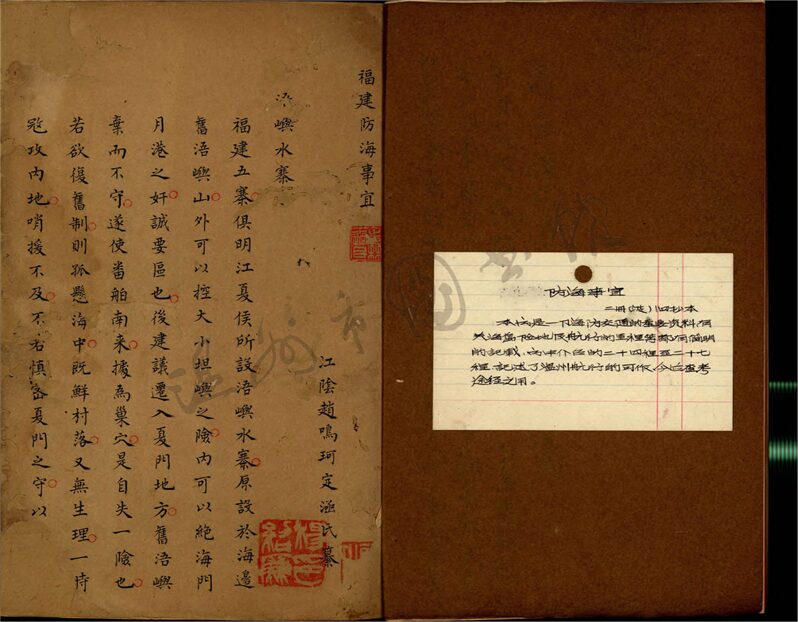 福建防海事宜
江陰趙鳴珂定涵氏纂
浯嶼水寨
福建五寨俱明江夏侯所設浯嶼水寨原設於海邉
舊浯嶼山外可以控大小坦嶼之險内可以絶海門
月港之奸誠要區也後建議遷入夏門地方舊浯嶼
棄而不守遂使畨舶南来據為巢穴是自失一險也
若欲復舊制則孤懸海中既鮮村落又無生理一時
宼攻内地哨援不及不若慎密夏門之守以
防海事宜
二册(全)旧抄本
本伩是一下海防交通的重要資料,何
的記載,内中仆区的二十四裡至二十七
裡,記述了温州航行的可作今后查考
途径之用。
温州市图书馆